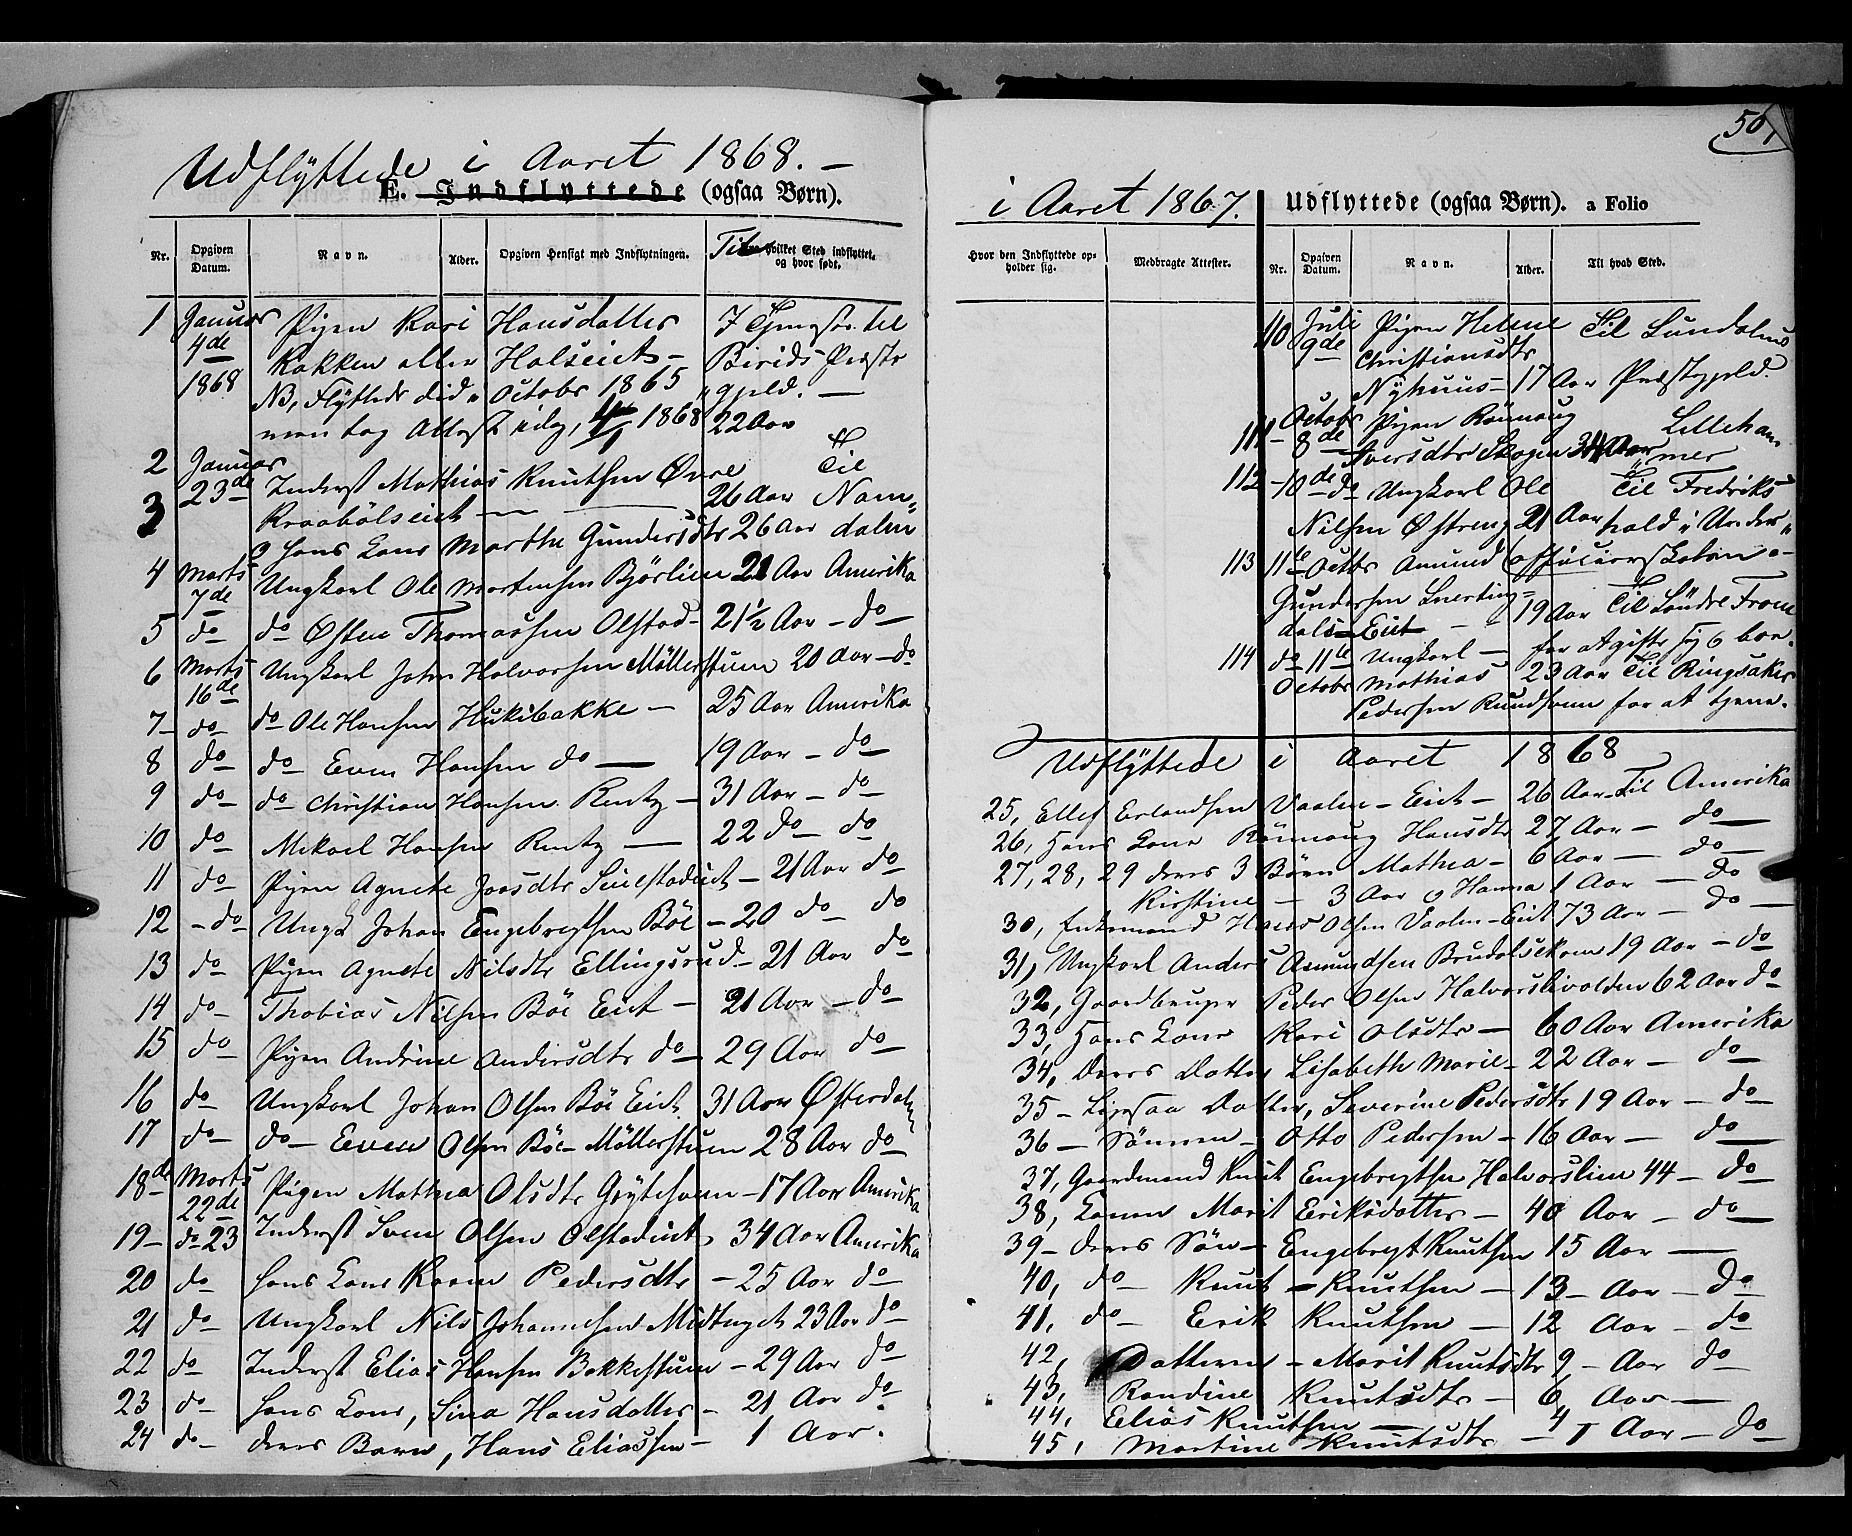 Udflyttede i Aaret 1868. –
E. Indflyttede (ogsaa Børn).
Nr. Opgiven Datum. Navn. Alder. Opgiven Hensigt med Indflytningen. Til hvilket Sted indflyttet, og hvor født.
1 Januar Pigen Kari Hansdatter 7 til
4de Kakken eller Halseiet – Birids Præste
1868 NB, Flyttede did i Octobr 1865 gjeld. –
men tog Attest idag, 4/1 1868 22 Aar
2 Januar 23de Inderst Mathias Knutsen Øvre Til
3 Kraabølseiet – 26 Aar Nam„
o hans Kone Marthe Gundersdtr 26 Aar dalen
4 Marts 7de Ungkarl Ole Mortensen Bjørlien 21 Aar Amerika
5 do do Østen Thomassen Olstad – 21½ Aar – do
6 Marts 16de Ungkarl John Halvorsen Møllerstuen 20 Aar – do
7 – do do Ole Hansen Hukibakke – 25 Aar Amerika
8 do do Even Hansen do – 19 Aar – do
9 do do Christian Hansen Rentz – 31 Aar – do
10 do Mikael Hansen Rentz – 22 do – do
11 do Pigen Agnete Joosdtr – 21 Aar do
12 – do Ungk Johan Engebregtsen Böe – 20 do do
13 do Pigen Agnete Nilsdtr Ellingsrud – 21 Aar do
14 do Thobias Nilsen Böe Eiet – 21 Aar – do
15 do Pigen Andrine Andersdtr do – 29 Aar do
16 do Ungkarl Johan Olsen Böe Eiet 31 Aar Østerdalen
17 do do – Even Olsen Böe – Møllerstuen 28 Aar do
18de Marts 22de Pigen Mathea Olsdtr – 17 Aar Amerika
19 – do 23 Inderst Sven Olsen Olstadeiet 34 Aar Amerika
20 do hans Kone Karen Pedersdtr – 25 Aar do
21 do Ungkarl Nils Johannesen Midteget 23 Aar do
22 do Inderst Elias Hansen Bakkestuen – 29 Aar do
23 do hans Kone, Sina Hansdatter – 21 Aar do
24 do – deres Barn, Hans Eliassen – 1 Aar.
501
i Aaret 1867. Udflyttede (ogsaa Børn). a Folio
Hvor den Indflyttede opholder sig. Medbragte Attester. Nr. Opgiven Datum. Navn. Alder. Til hvad Sted.
110 Juli 9de Pigen Helene Til
Christiansdtr
Nyhuus – 17 Aar Præstegjeld.
111 – Octobr 8de Pigen Rønnaug Lilleham
Iversdtr Skogen 34 Aar mer
112 – 10de do Ungkarl Ole Til Fredriks
Nilsen Østreng 21 Aar hald i Under „
113 11te Octbr Amund officiersskolen –
Gundersen
dals Eiet – 19 Aar Til Søndre Fron
114 do 11te Ungkarl – for at gifte sig o bor.
Octobr Mathias 23 Aar Til Ringsaker
Pedersen for at tjene.
Udflyttede i Aaret 1868
25, Ellef Erlandsen – Eiet – 26 Aar – Til Amerika
26, hans Kone Rønnaug Hansdtr 27 Aar – do
27, 28, 29 deres 3 Børn Mathea – 6 Aar – do
Kirstine – 3 Aar o Hanna 1 Aar – do
30, Enkemand Hans Olsen – Eiet 73 Aar – do
31, Ungkarl Anders Asmundsen 19 Aar – do
32, Gaardbruger Peder Olsen 62 Aar do
33, hans Kone Kari Olsdtr – 60 Aar Amerika
34, Deres Datter Lisabeth Marie – 22 Aar – do
35 – Ligesaa Datter, Severine Pedersdtr 19 Aar – do
36 – Sønnen – Otto Pedersen – 16 Aar – do
37, Gaardmand Knut Engebregtsen Halvorslien 44 – do
38, Konen Marit Eriksdatter – 40 Aar – do
39 – deres Søn – Engebregt Knutsen 15 Aar –
40, do Knut – Knutsen – 13 – Aar – do
41, do – Erik Knutsen – 12 Aar – do
42, Datteren – Marit Knutsdtr 9 – Aar do
43, Randine Knutsdtr – 6 Aar –
44, Elias Knutsen – 4
45, Martine Knutsdtr – 1 Aar – do